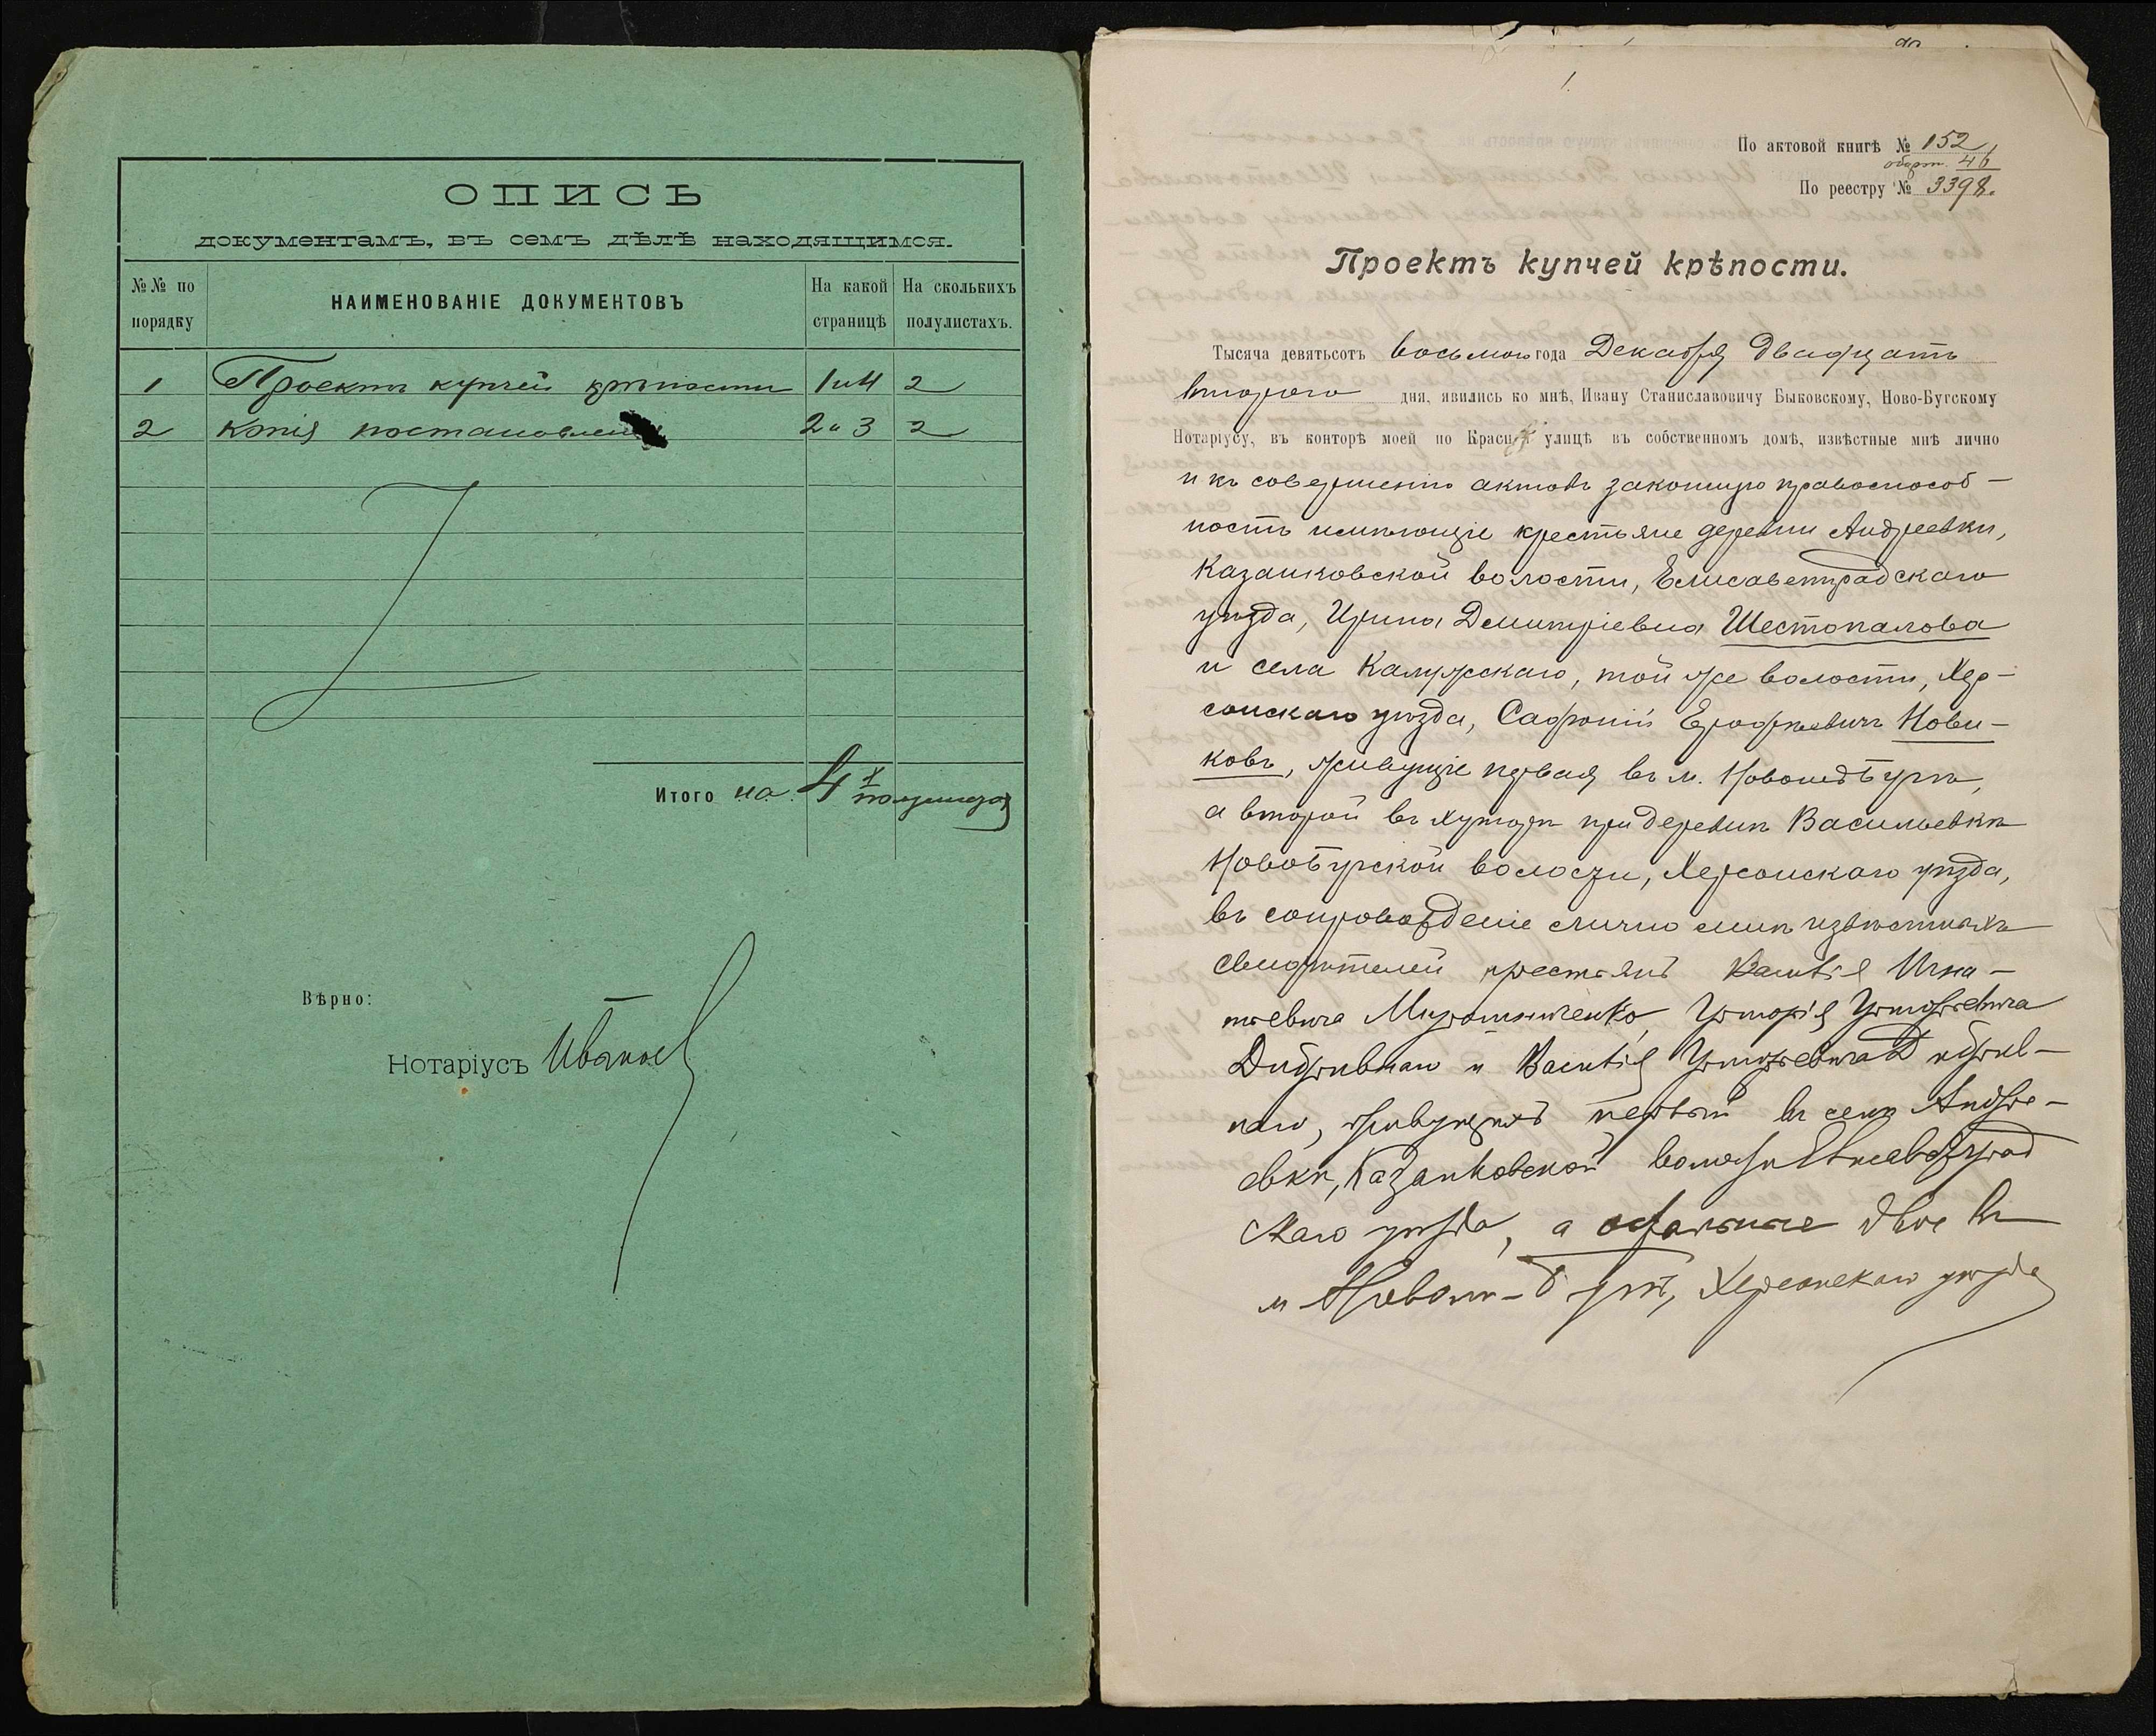 ОПИСЬ
документамъ, въ семъ дѣлѣ находящимся.
№№ по порядку
НАИМЕНОВАНІЕ ДОКУМЕНТОВЪ
На какой страницѣ
На сколькихъ полулистахъ.
1 Проектъ купчей крѣпости 1 и 4 2
2 Копія постановленія 2 и 3 2
Итого на 4х полулистах
Вѣрно:
Нотаріусъ
1.
По актовой книгѣ № 152,
46
По реестру № 3398.
Проектъ купчей крѣпости.
Тысяча девятьсотъ восьмого года Декабря двадцать
второго дня, явились ко мнѣ, Ивану Станиславовичу Быковскому, Ново-Бугскому
Нотаріусу, въ конторѣ моей по Красной улицѣ въ собственномъ домѣ, извѣстные мнѣ лично
и къ совершенію актовъ законную правоспособ-
ность имѣющіе крестьяне деревни Андреевки,
Казанковской волости, Елисаветградскаго
уѣзда, Ирина Димитріевна Шестопалова
и села Калужскаго, той же волости, Хер-
сонскаго уѣзда, Сафоній Ерофѣевичъ Нови-
ковъ, живущіе первая въ м. Новомъ Бугѣ,
а второй въ хуторѣ при деревнѣ Васильевкѣ
Новобугской волости, Херсонскаго уѣзда,
въ сопровожденіе лично мнѣ извѣстныхъ
свидѣтелей крестьянъ Василія Игна-
тьевича Мирошниченко, Григорія Григорьевича
и Василія Григорьевича
наго, живущихъ первый въ селѣ Андре-
евкѣ, Казанковской волости Елисаветград
скаго уѣзда, а остальные двое въ
м Новомъ-Бугѣ, Херсонскаго уѣзда